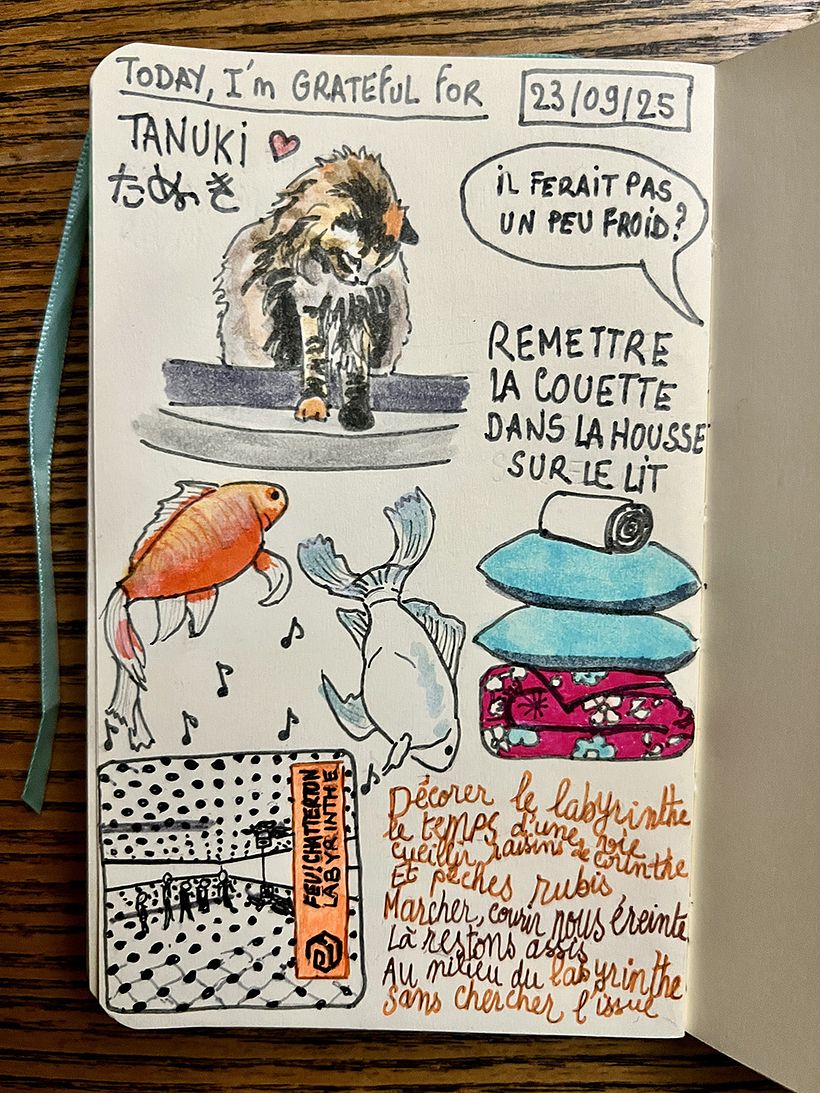 TODAY, I'm GRATEFUL FOR
23/09/25
TANUKI
たぬき
iL FERAIT PAS
UN PEU FROID?
REMETTRE
LA COUETTE
DANS LA HOUSSE
SUR LE LIT
FEU! CHATTERTON
LABYRINTHE
Décorer le labyrinthe
le temps d'une vie
cueillir raisins de corinthe
Et pêches rubis
Marcher, courir nous éreinte
Là restons assis
Au milieu du labyrinthe
Sans chercher l'issue